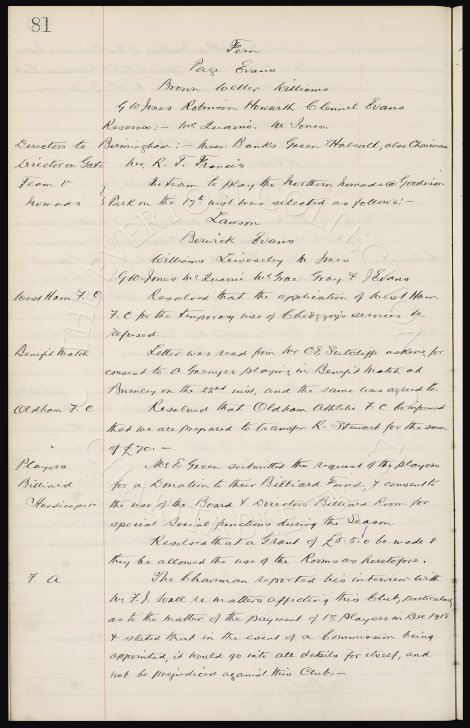 81
Fern
Page Evans
Brown Weller Williams
G W Jones Robinson Howarth Clennel Evans
Reserves:- McQuarrie. M Jones.
Directors to Birmingham:- Messrs. Banks Green & Halsall, also Chairman
Director on Gate Mr. R. T. Francis
Team v The team to play the Northern Nomads @ Goodison
Nomads Park on the 17th inst was selected as follows:-
Lawson
Berwick Evans
Williams Leivesley M Jones
G W Jones McQuarrie McGrae Gray & J Evans
West Ham F.C. Resolved that the application of West Ham
F.C for the temporary use of Chedgzoy's services be
refused.
Benefit Match Letter was read from Mr C E Sutcliffe asking for
consent to A Grenyer playing in Benefit Match at
Burnley on the 22nd inst, and the same was agreed to.
Oldham F.C Resolved that Oldham Athletic F.C be informed
that we are prepared to transfer R. Stewart for the sum
of £70.-
Players Mr E. Green submitted the request of the players
Billiard for a Donation to their Billiard Fund, & consent to
Handicaps the use of the Board & Directors Billiard Room for
special Social functions during the Season
Resolved that a Grant of £5.5.0 be made &
they be allowed the use of the Rooms as heretofore.
F. A The Chairman reported his interview with
Mr. F. J. Wall re matters affecting this Club, particularly
as to the matter of the payment of 13 players in Dec 1918
& stated that in the event of a Commission being
appointed, it would go into all details for itself, and
not be prejudiced against this Club.-
THE EVERTON COLLECTION